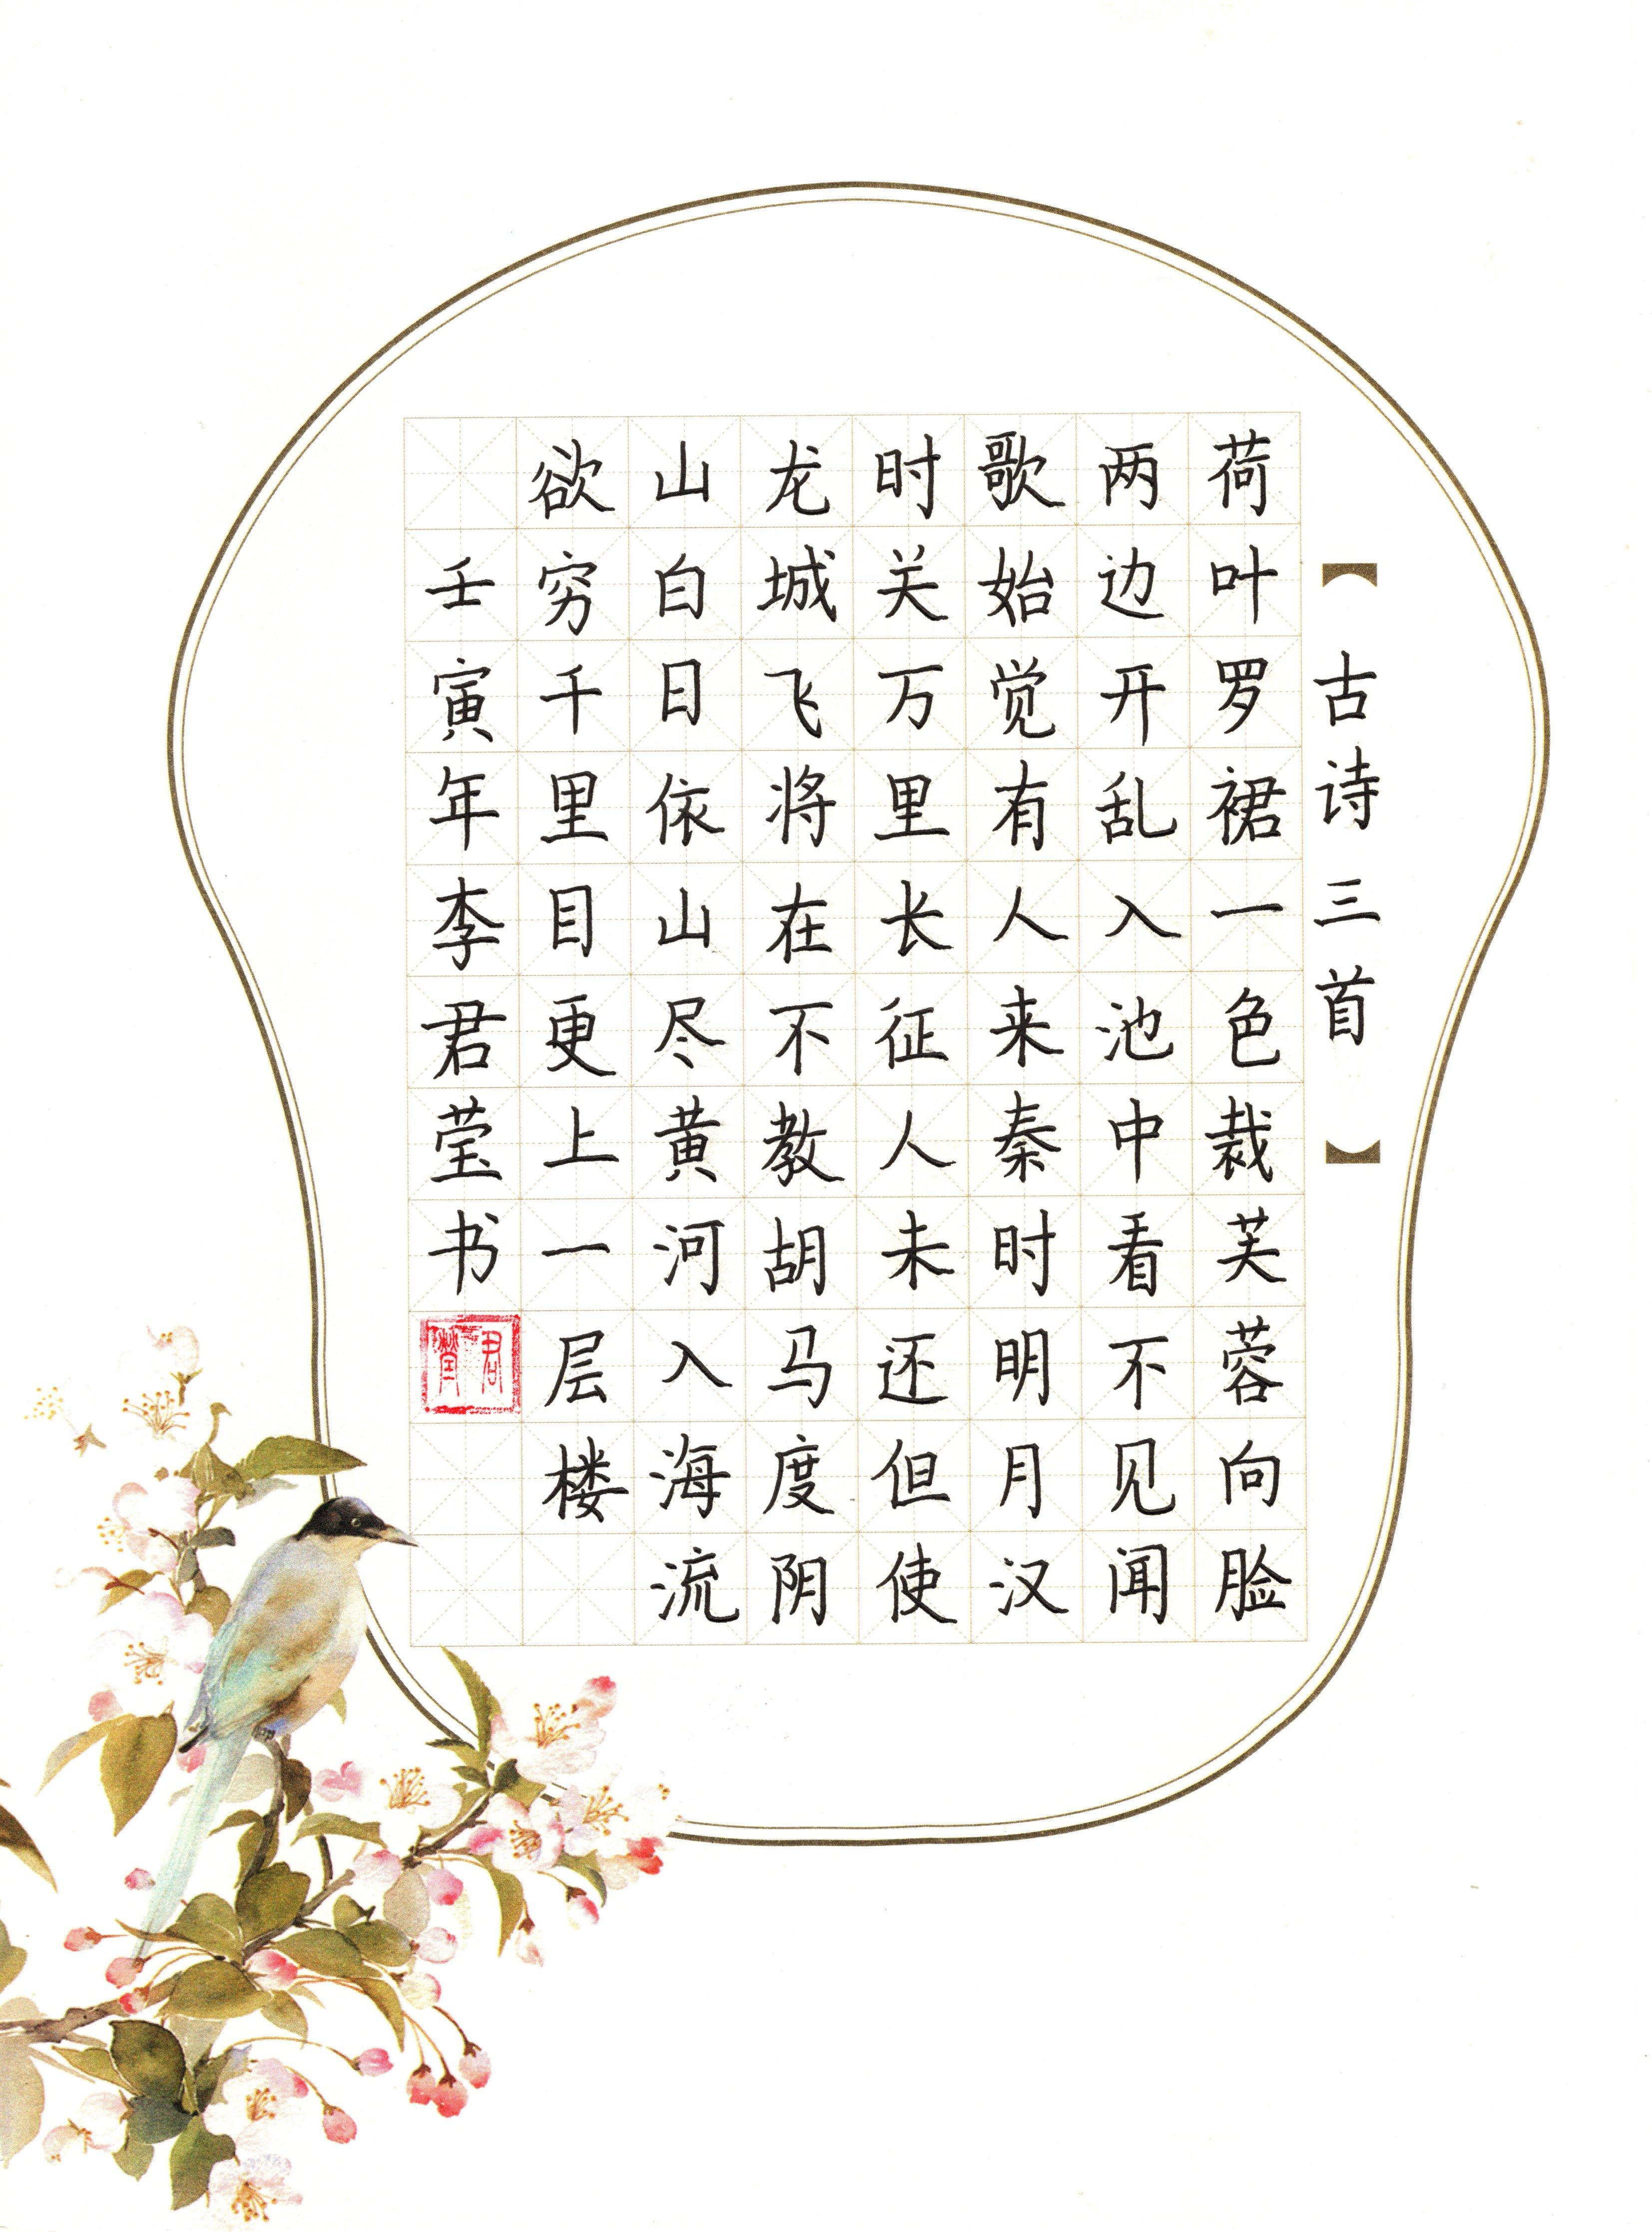 【古诗三首】
荷叶罗裙一色裁芙蓉向脸
两边开乱入池中看不见闻
歌始觉有人来秦时明月汉
时关万里长征人未还但使
龙城飞将在不教胡马度阴
山白日依山尽黄河入海流
欲穷千里目更上一层楼
壬寅年李君莹书
君莹